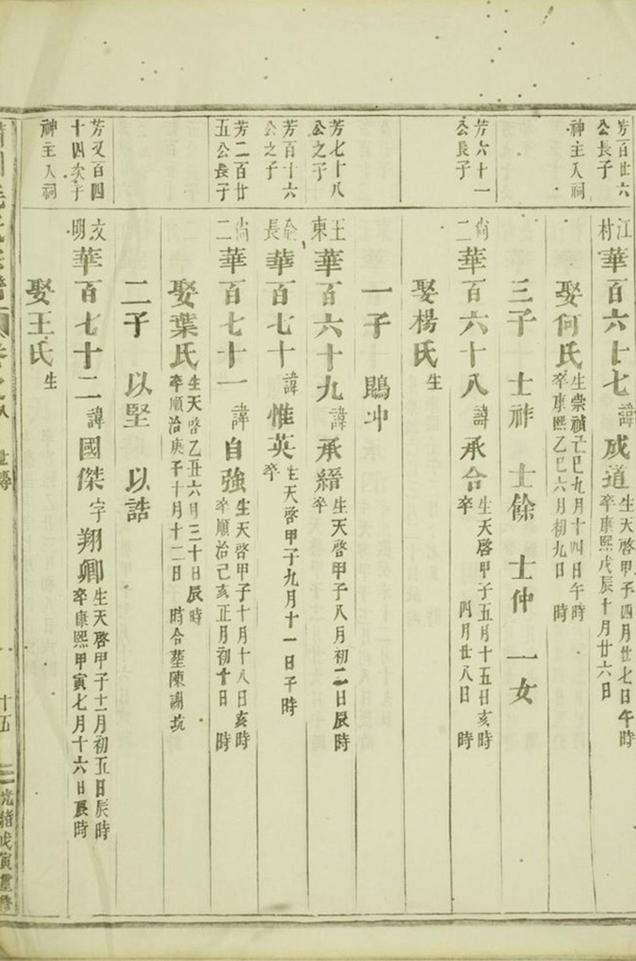 芳百廿六
公長子
江村 華百六十七 諱成道 生天啓甲子四月廿七日午時
卒康熙戊辰十月廿六日
神主入祠
娶何氏 生崇禎己巳九月十四日午時
卒康熙乙巳六月初九日 時
三子 士祚 士餘 士仲 一女
芳六十一
公長子
尙二 華百六十八 諱承合 生天啓甲子五月十五日亥時
卒 四月廿八日 時
娶楊氏 生
一子 鵾冲
芳七十八
公之子
王東 華百六十九 諱承縉 生天啓甲子八月初二日辰時
卒
芳百十六
公之子
長 華百七十 諱惟英 生天啓甲子九月十一日午時
卒
芳二百廿
五公長子
尙二 華百七十一 諱自強 生天啓甲子十月十八日亥時
卒順治己亥正月初十日 時
娶葉氏 生天啓乙丑六月三十日辰時
卒順治庚子十月十二日 時合塟陳
二子 以堅 以誥
芳又百四
十四次子
文明 華百七十二 諱國傑 字翔卿 生天啓甲子十二月初五日辰時
卒康熙甲寅七月十六日辰時
神主入祠
娶王氏 生
氏宗譜 卷之八 世傳 十五 光緒戊寅重修